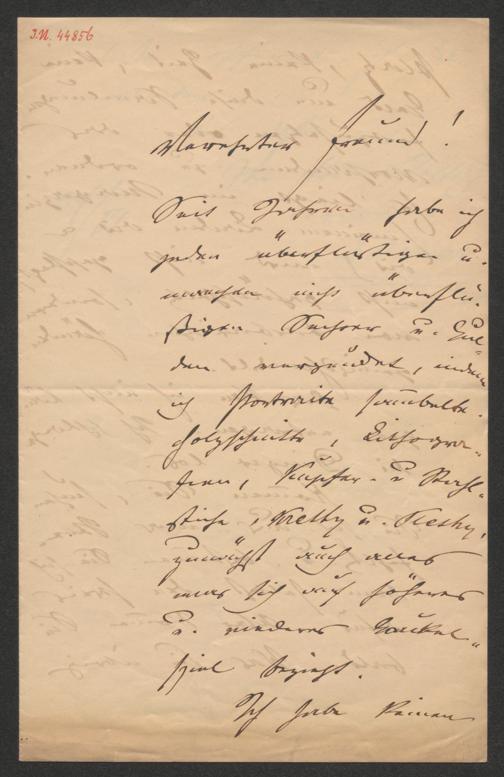 J.N. 44856
Verehrter Freund!
Seit Jahren habe ich
jeden überflüssigen u.
manchen nicht überflü-
ßigen Sechser u. Gul-
den vergeudet, indem
ich Portraite sammelte.
Holzschnitte, Lithogra-
fien, Kupfer- u Stahl-
stiche, Krethy u. Plethy,
zunächst auch alles
was sich auf höheres
u. niederes Gaukel-
spiel bezieht.
Ich habe keinen